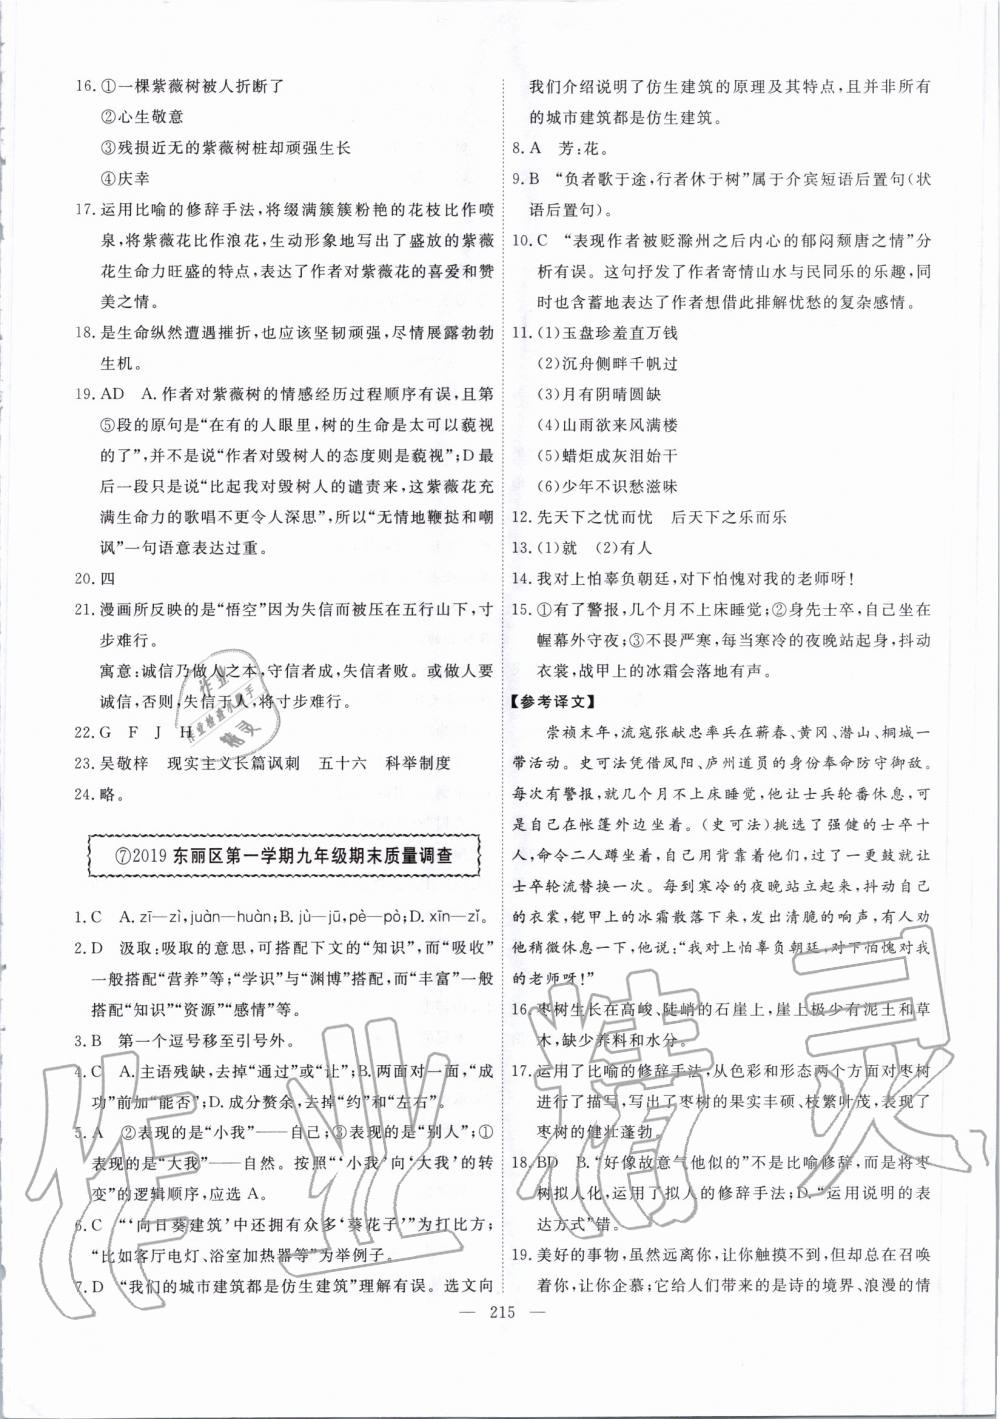 16. ①一棵紫薇树被人折断了
②心生敬意
③残损近无的紫薇树桩却顽强生长
④庆幸
17. 运用比喻的修辞手法,将缀满簇簇粉艳的花枝比作喷
泉,将紫薇花比作浪花,生动形象地写出了盛放的紫薇
花生命力旺盛的特点,表达了作者对紫薇花的喜爱和赞
美之情。
18. 是生命纵然遭遇摧折,也应该坚韧顽强,尽情展露勃勃
生机。
19. AD A.作者对紫薇树的情感经历过程顺序有误,且第
⑤段的原句是“在有的人眼里,树的生命是太可以藐视
的了”,并不是说“作者对毁树人的态度则是藐视”;D最
后一段只是“比起我对毁树人的谴责来,这紫薇花充
满生命力的歌唱不更令人深思”,所以“无情地鞭挞和嘲
讽”一句语意表达过重。
20. 四
21. 漫画所反映的是“悟空”因为失信而被压在五行山下,寸
步难行。
寓意:诚信乃做人之本,守信者成,失信者败。我们做人要
诚信,否则,失信于人,将寸步难行。
22. G F J H
23. 吴敬梓 现实主义长篇讽刺 五十六 科举制度
24. 略。
⑦2019东丽区第一学期九年级期末质量调查
1. C A. zī—zì,juàn—huàn;B. jù—jū,pè—pò;D. xīn—zǐ。
2. D 汲取:吸取的意思,可搭配下文的“知识”,而“吸收”
一般搭配“营养”等;“学识”与“渊博”搭配,而“丰富”一般
搭配“知识”“资源”“感情”等。
3. B 第一个逗号移至引号外。
4. C A.主语残缺,去掉“通过”或“让”;B.两面对一面,“成
功”前加“能否”;D.成分赘余,去掉“约”和“左右”。
5. A ②表现的是“小我”——自己;③表现的是“别人”;①
表现的是“大我”——自然。按照“‘小我’向‘大我’的转
变”的逻辑顺序,应选A。
6. C “‘向日葵建筑’中还拥有众多‘葵花子’”为打比方;
“比如客厅电灯、浴室加热器等”为举例子。
7. D “我们的城市建筑都是仿生建筑”理解有误。选文向
我们介绍说明了仿生建筑的原理及其特点,且并非所有
的城市建筑都是仿生建筑。
8. A 芳:花。
9. B “负者歌于途,行者休于树”属于介宾短语后置句(状
语后置句)。
10. C “表现作者被贬滁州之后内心的郁闷颓唐之情”分
析有误。这句抒发了作者寄情山水与民同乐的乐趣,同
时也含蓄地表达了作者想借此排解忧愁的复杂感情。
11. (1)玉盘珍羞直万钱
(2)沉舟侧畔千帆过
(3)月有阴晴圆缺
(4)山雨欲来风满楼
(5)蜡炬成灰泪始干
(6)少年不识愁滋味
12. 先天下之忧而忧 后天下之乐而乐
13. (1)就 (2)有人
14. 我对上怕辜负朝廷,对下怕愧对我的老师呀!
15. ①有了警报,几个月不上床睡觉;②身先士卒,自己坐在
幄幕外守夜;③不畏严寒,每当寒冷的夜晚站起身,抖动
衣裳,战甲上的冰霜会落地有声。
【参考译文】
崇祯末年,流寇张献忠率兵在蕲春、黄冈、潜山、桐城一
带活动。史可法凭借凤阳、庐州道员的身份奉命防守御敌。
每次有警报,就几个月不上床睡觉,他让士兵轮番休息,
自己坐在帐篷外边站岗。(史可法)挑选了强健的士卒十
人,命令二人蹲坐着,他背靠着他们,每过一更鼓,就让
士卒轮流替换休息。每到寒冷的夜晚站立起来,抖动自己
的衣裳,铠甲上的冰霜散落下来,发出清脆的响声,有人劝
他稍微休息一下,他说:“我对上怕辜负朝廷,对下怕愧对我
的老师呀!”
16. 枣树生长在高峻、陡峭的石崖上,崖上极少有泥土和草
木,缺少养料和水分。
17. 运用了比喻的修辞手法,从色彩和形态两个方面对枣树
进行了描写,写出了枣树的果实丰硕、枝繁叶茂,表现了
枣树的健壮蓬勃。
18. BD B.“好像故意气他似的”不是比喻修辞,而是将枣
树拟人化,运用了拟人的修辞手法;D.“运用说明的表
达方式”错。
19. 美好的事物,虽然远离你,让你触摸不到,但却总在召唤
着你,让你企慕;它给人们带来的是诗的境界、浪漫的情
— 215 —
作业精灵
作业
作业检查小助手
精灵